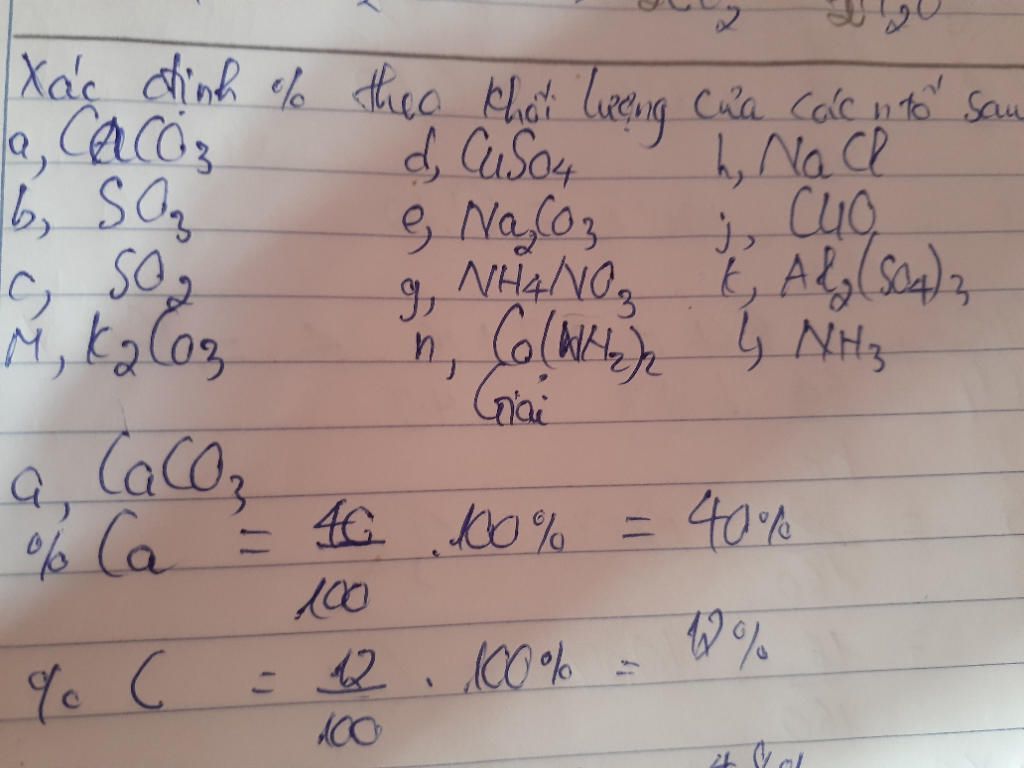 Xác định % theo khối lượng của các ntố sau
a, CaCO3 d, CuSO4 h, NaCl
b, SO3 e, Na2CO3 j, CuO
c, SO2 g, NH4NO3 k, Al2(SO4)3
M, K2CO3 n, CO(NH2)2 l, NH3
Giải
a, CaCO3
% Ca = 40/100 . 100% = 40%
% C = 12/100 . 100% = 12%